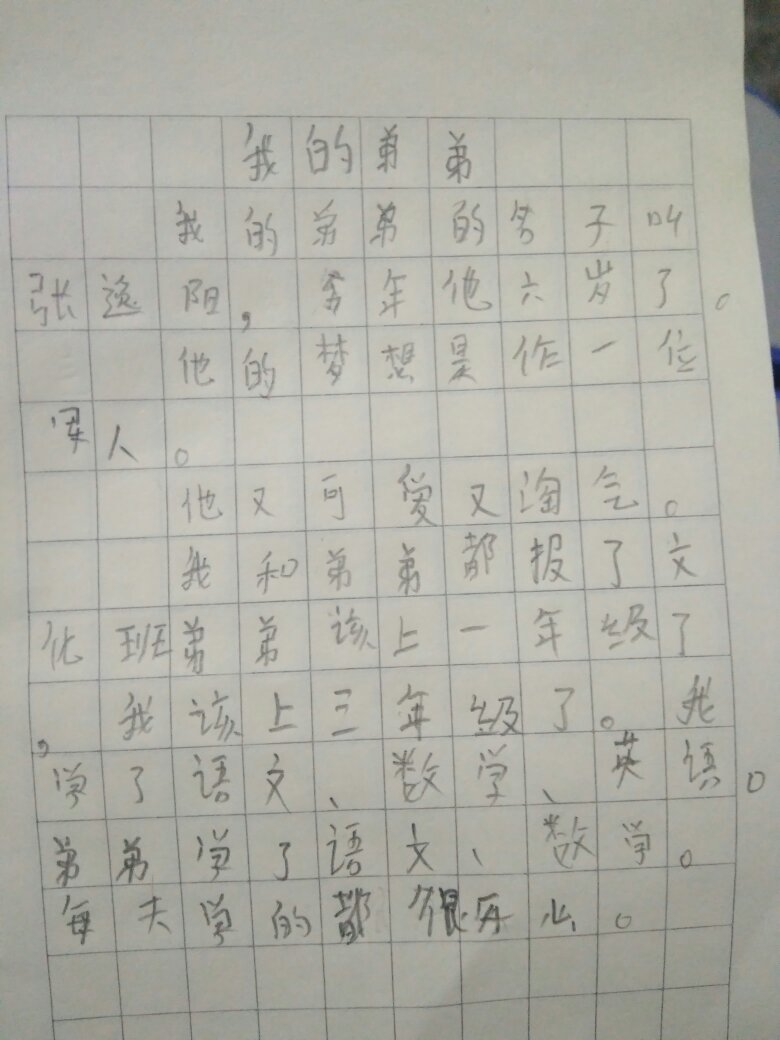 我的弟弟
我的弟弟的名子叫
张逸阳,今年他六岁了。
他的梦想是作一位
军人。
他又可爱又淘气。
我和弟弟都报了文
化班弟弟该上一年级了
,我该上三年级了。我
学了语文、数学、英语。
弟弟学了语文、数学。
每天学的都很开心。